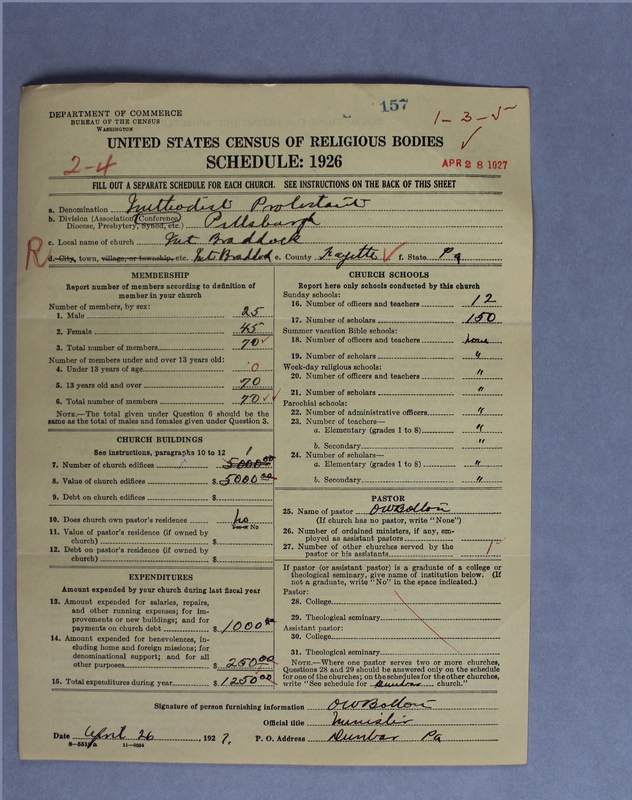 157
1-3-5
DEPARTMENT OF COMMERCE
BUREAU OF THE CENSUS
WASHINGTON
UNITED STATES CENSUS OF RELIGIOUS BODIES
2-4
SCHEDULE: 1926
APR 28 1927
FILL OUT A SEPARATE SCHEDULE FOR EACH CHURCH. SEE INSTRUCTIONS ON THE BACK OF THIS SHEET
a. Denomination Methodist Protestant
b. Division (Association, Conference, Diocese, Presbytery, Synod, etc.) Pittsburgh
c. Local name of church Mt Braddock
R d. City, town, village, or township, etc. Mt Braddock e. County Fayette f. State Pa
MEMBERSHIP
Report number of members according to definition of
member in your church
Number of members, by sex:
1. Male 25
2. Female 45
3. Total number of members 70
Number of members under and over 13 years old:
4. Under 13 years of age 0
5. 13 years old and over 70
6. Total number of members 70
NOTE.—The total given under Question 6 should be the
same as the total of males and females given under Question 3.
CHURCH BUILDINGS
See instructions, paragraphs 10 to 12
7. Number of church edifices 5000.00 1
8. Value of church edifices $5000.00
9. Debt on church edifices $
10. Does church own pastor's residence No
Yes or No
11. Value of pastor's residence (if owned by
church) $
12. Debt on pastor's residence (if owned by
church) $
EXPENDITURES
Amount expended by your church during last fiscal year
13. Amount expended for salaries, repairs,
and other running expenses; for im-
provements or new buildings; and for
payments on church debt $1000.00
14. Amount expended for benevolences, in-
cluding home and foreign missions; for
denominational support; and for all
other purposes $250.00
15. Total expenditures during year $1250.00
CHURCH SCHOOLS
Report here only schools conducted by this church
Sunday schools:
16. Number of officers and teachers 12
17. Number of scholars 150
Summer vacation Bible schools:
18. Number of officers and teachers none
19. Number of scholars "
Week-day religious schools:
20. Number of officers and teachers "
21. Number of scholars "
Parochial schools:
22. Number of administrative officers "
23. Number of teachers—
a. Elementary (grades 1 to 8) "
b. Secondary "
24. Number of scholars—
a. Elementary (grades 1 to 8) "
b. Secondary "
PASTOR
25. Name of pastor O W Bolton
(If church has no pastor, write "None")
26. Number of ordained ministers, if any, em-
ployed as assistant pastors
27. Number of other churches served by the
pastor or his assistants 1
If pastor (or assistant pastor) is a graduate of a college or
theological seminary, give name of institution below. (If
not a graduate, write "No" in the space indicated.)
Pastor:
28. College
29. Theological seminary
Assistant pastor:
30. College
31. Theological seminary
NOTE.—Where one pastor serves two or more churches,
Questions 28 and 29 should be answered only on the schedule
for one of the churches; on the schedules for the other churches,
write "See schedule for Dunbar church."
Signature of person furnishing information O W Bolton
Official title Minister
Date April 26, 1927. P. O. Address Dunbar Pa